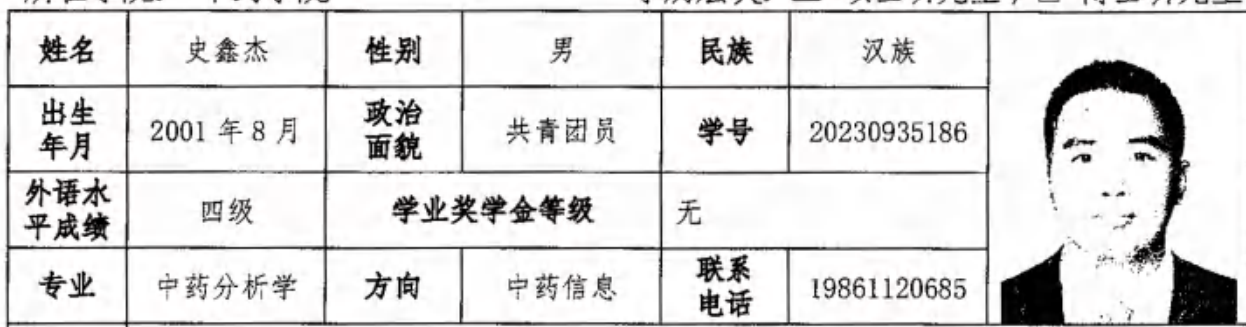 姓名 史鑫杰 性别 男 民族 汉族
出生年月 2001年8月 政治面貌 共青团员 学号 20230935186
外语水平成绩 四级 学业奖学金等级 无
专业 中药分析学 方向 中药信息 联系电话 19861120685